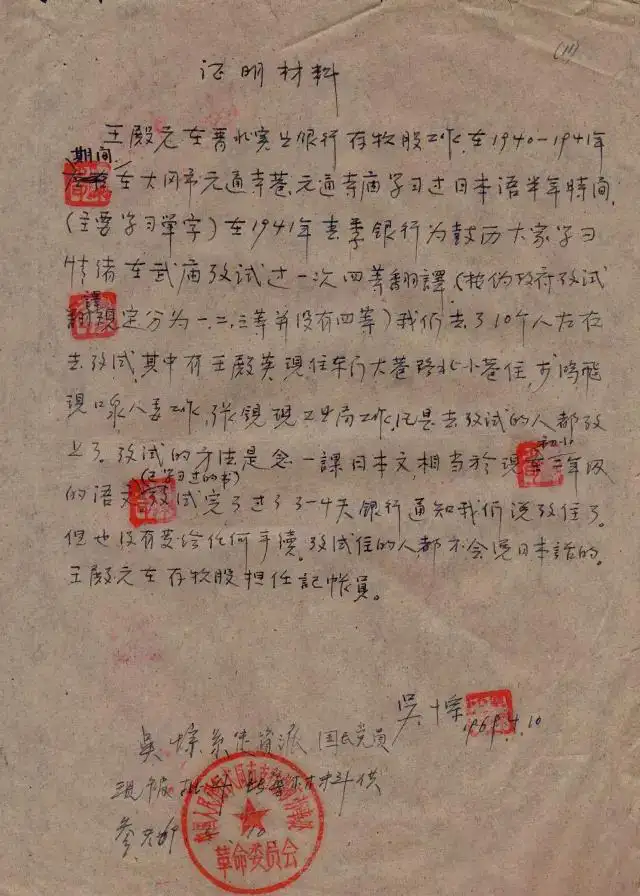 (11)
证明材料
王殿元在晋北实业银行存放股工作,在1940-1941年
期间
在大同市元通寺巷元通寺庙学习过日本语半年時间,
(主要学习单字)在1941年春季銀行为鼓历大家学习
情绪在武庙攷试过一次四等翻譯(按伪政府攷试
譯
翻規定分为一.二.三等并没有四等)我们去了10个人左右
去攷试,其中有王殿英現住车门大巷路北小巷住,
現口泉人委工作,張鏡現工业局工作,凡是去攷试的人都攷
上了。攷试的方法是念一課日本文,相当於現三年级
初小
(已学习过的书)
的语文,攷试完了过了3-4天銀行通知我们说攷住了。
但也没有发给任何手續。攷试住的人,都不会说日本話的。
王殿元在存放股担任記帳員。
吴
1969.4.10
吴 系 资派 国民党员
現被 材料供
参考
革命委员会